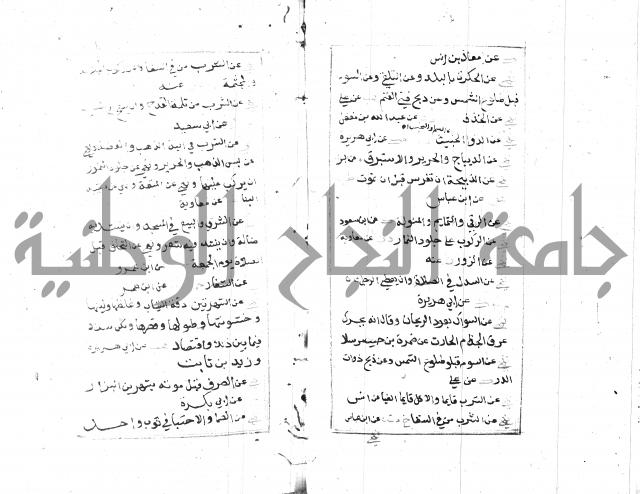 عن معاذ بن انس
عن الحكرة بالبلد وعن التلقي وعن السوم
قبل طلوع الشمس وعن ذبح قني الغنم عن علي
عن الخذف عن عبد الله بن مغفل
عن الدواء الخبيث عن ابي هريرة
عن الديباج والحرير والاستبرق
عن الذبيحة ان تفرس قبل ان تموت
عن ابن عباس
عن الرقى والتمايم والتولة عن ابن مسعود
عن الركوب على جلود النمار عن معاوية
عن الزور عنه
عن السدل في الصلاة وان يغطي الرجل
عن ابي هريرة
عن السواك بعود الريحان وقال انه يحرك
عرق الجذام الحارث عن ضمرة بن حبيب مرسلا
عن السوم قبل طلوع الشمس وعن ذبح ذوات
الدر عن علي
عن الشرب قايما والاكل قايما الضيا عن انس
عن الشرب من في السقا عن ابن عباس
عن الشرب من في السقا
والمجثمة عنه
عن الشرب من ثلمة القدح
عن ابي سعيد
عن الشرب في انية الذهب والفضة
عن لبس الذهب والحرير جلود النمور
ان يركب عليها المتعة
البنا عن معاوية
عن الشرى والبيع في المسجد وان ينشد فيه
ضالة وان ينشد فيه شعر ونهى عن التحلق قبل
الصلاة يوم الجمعة عن ابن عمرو
عن الشغار عن ابن عمر
عن الشهرتين دقة الثياب وغلظها ولينها
وخشونتها وطولها وقصرها ولكن سداد
فيما بين ذلك واقتصاد عن ابي هريرة
وزيد بن ثابت
عن الصرف قبل موته بشهرين البزار
عن ابي بكرة
عن الصما والاحتبا في ثوب واحد
جامعة النجاح الوطنية